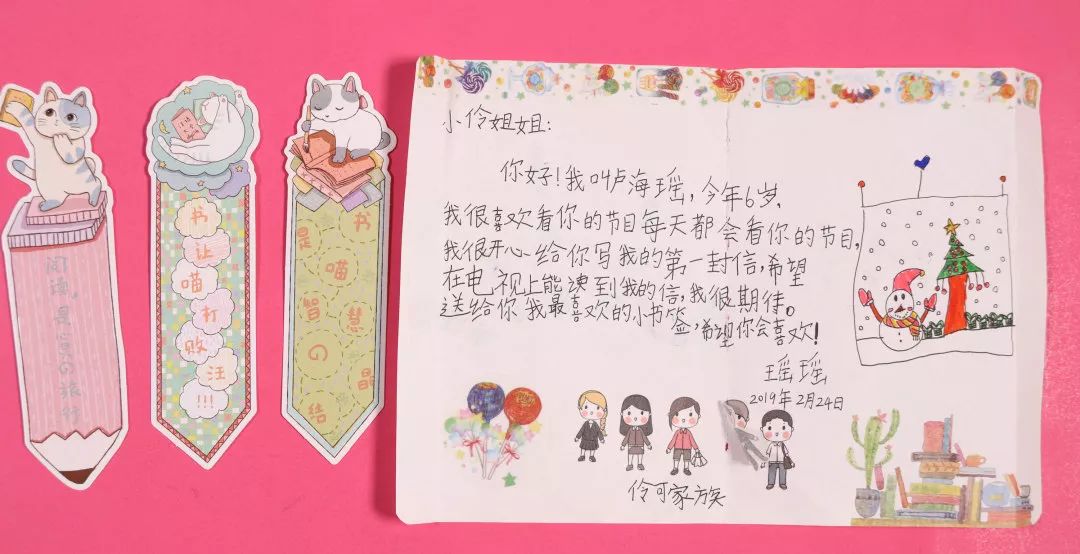 阅读,是心の旅行
书让喵打败汪!!!
书是喵智慧の结晶
小伶姐姐:
你好!我叫卢海瑶,今年6岁,
我很喜欢看你的节目每天都会看你的节目,
我很开心给你写我的第一封信,希望
在电视上能读到我的信,我很期待。
送给你我最喜欢的小书签,希望你会喜欢!
瑶瑶
2019年2月24日
伶可家族